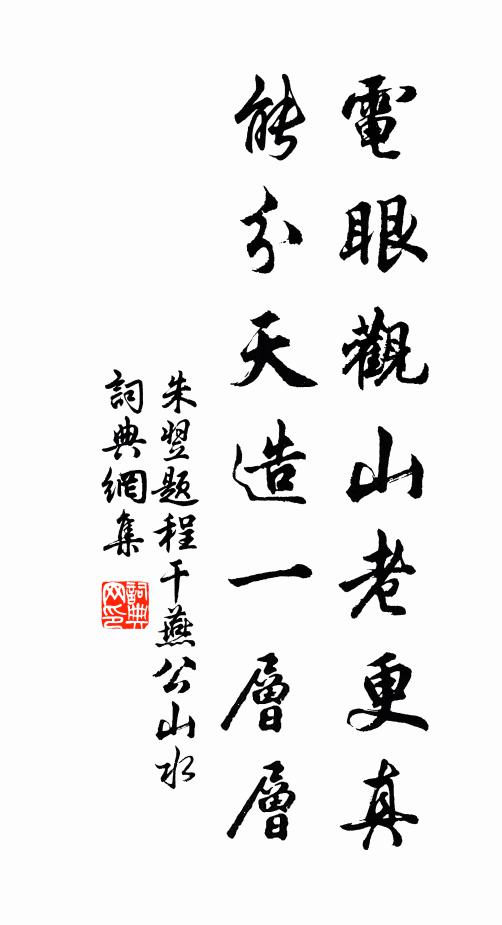 電眼觀山老更真
能分天造一層層
朱翌题程干燕公山水
詞典網集
詞典网印